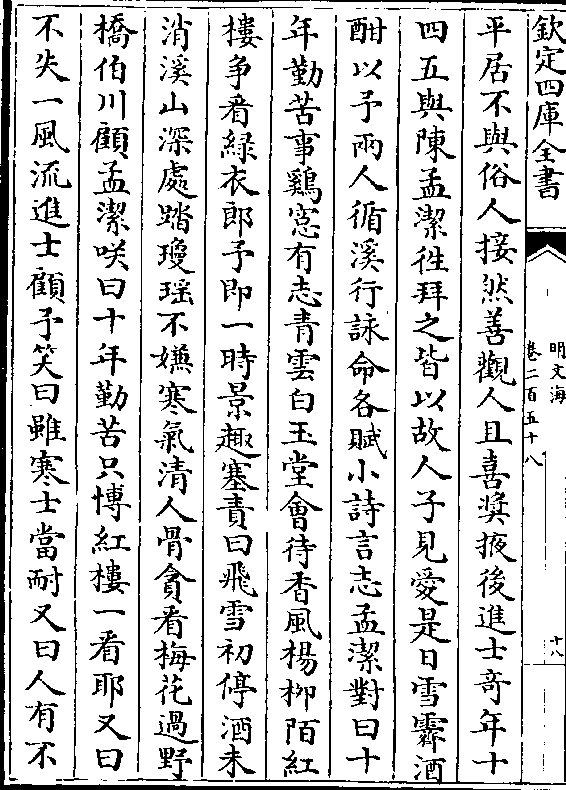 欽定四庫全書
明文海
卷二百五十八
十八
平居不與俗人接然善觀人且喜奬掖後進士竒年十
四五與陳孟潔徃拜之皆以故人子見愛是日雪霽酒
酣以予兩人循溪行詠命各賦小詩言志孟潔對曰十
年勤苦事鷄窓有志青雲白玉堂會待香風楊栁陌紅
樓争看緑衣郎予即一時景趣塞責曰飛雪初停酒未
消溪山深處踏瓊瑶不嫌寒氣清人骨貪看梅花過野
橋伯川顧孟潔咲曰十年勤苦只博紅樓一看耶又曰
不失一風流進士顧予笑曰雖寒士當耐又曰人有不